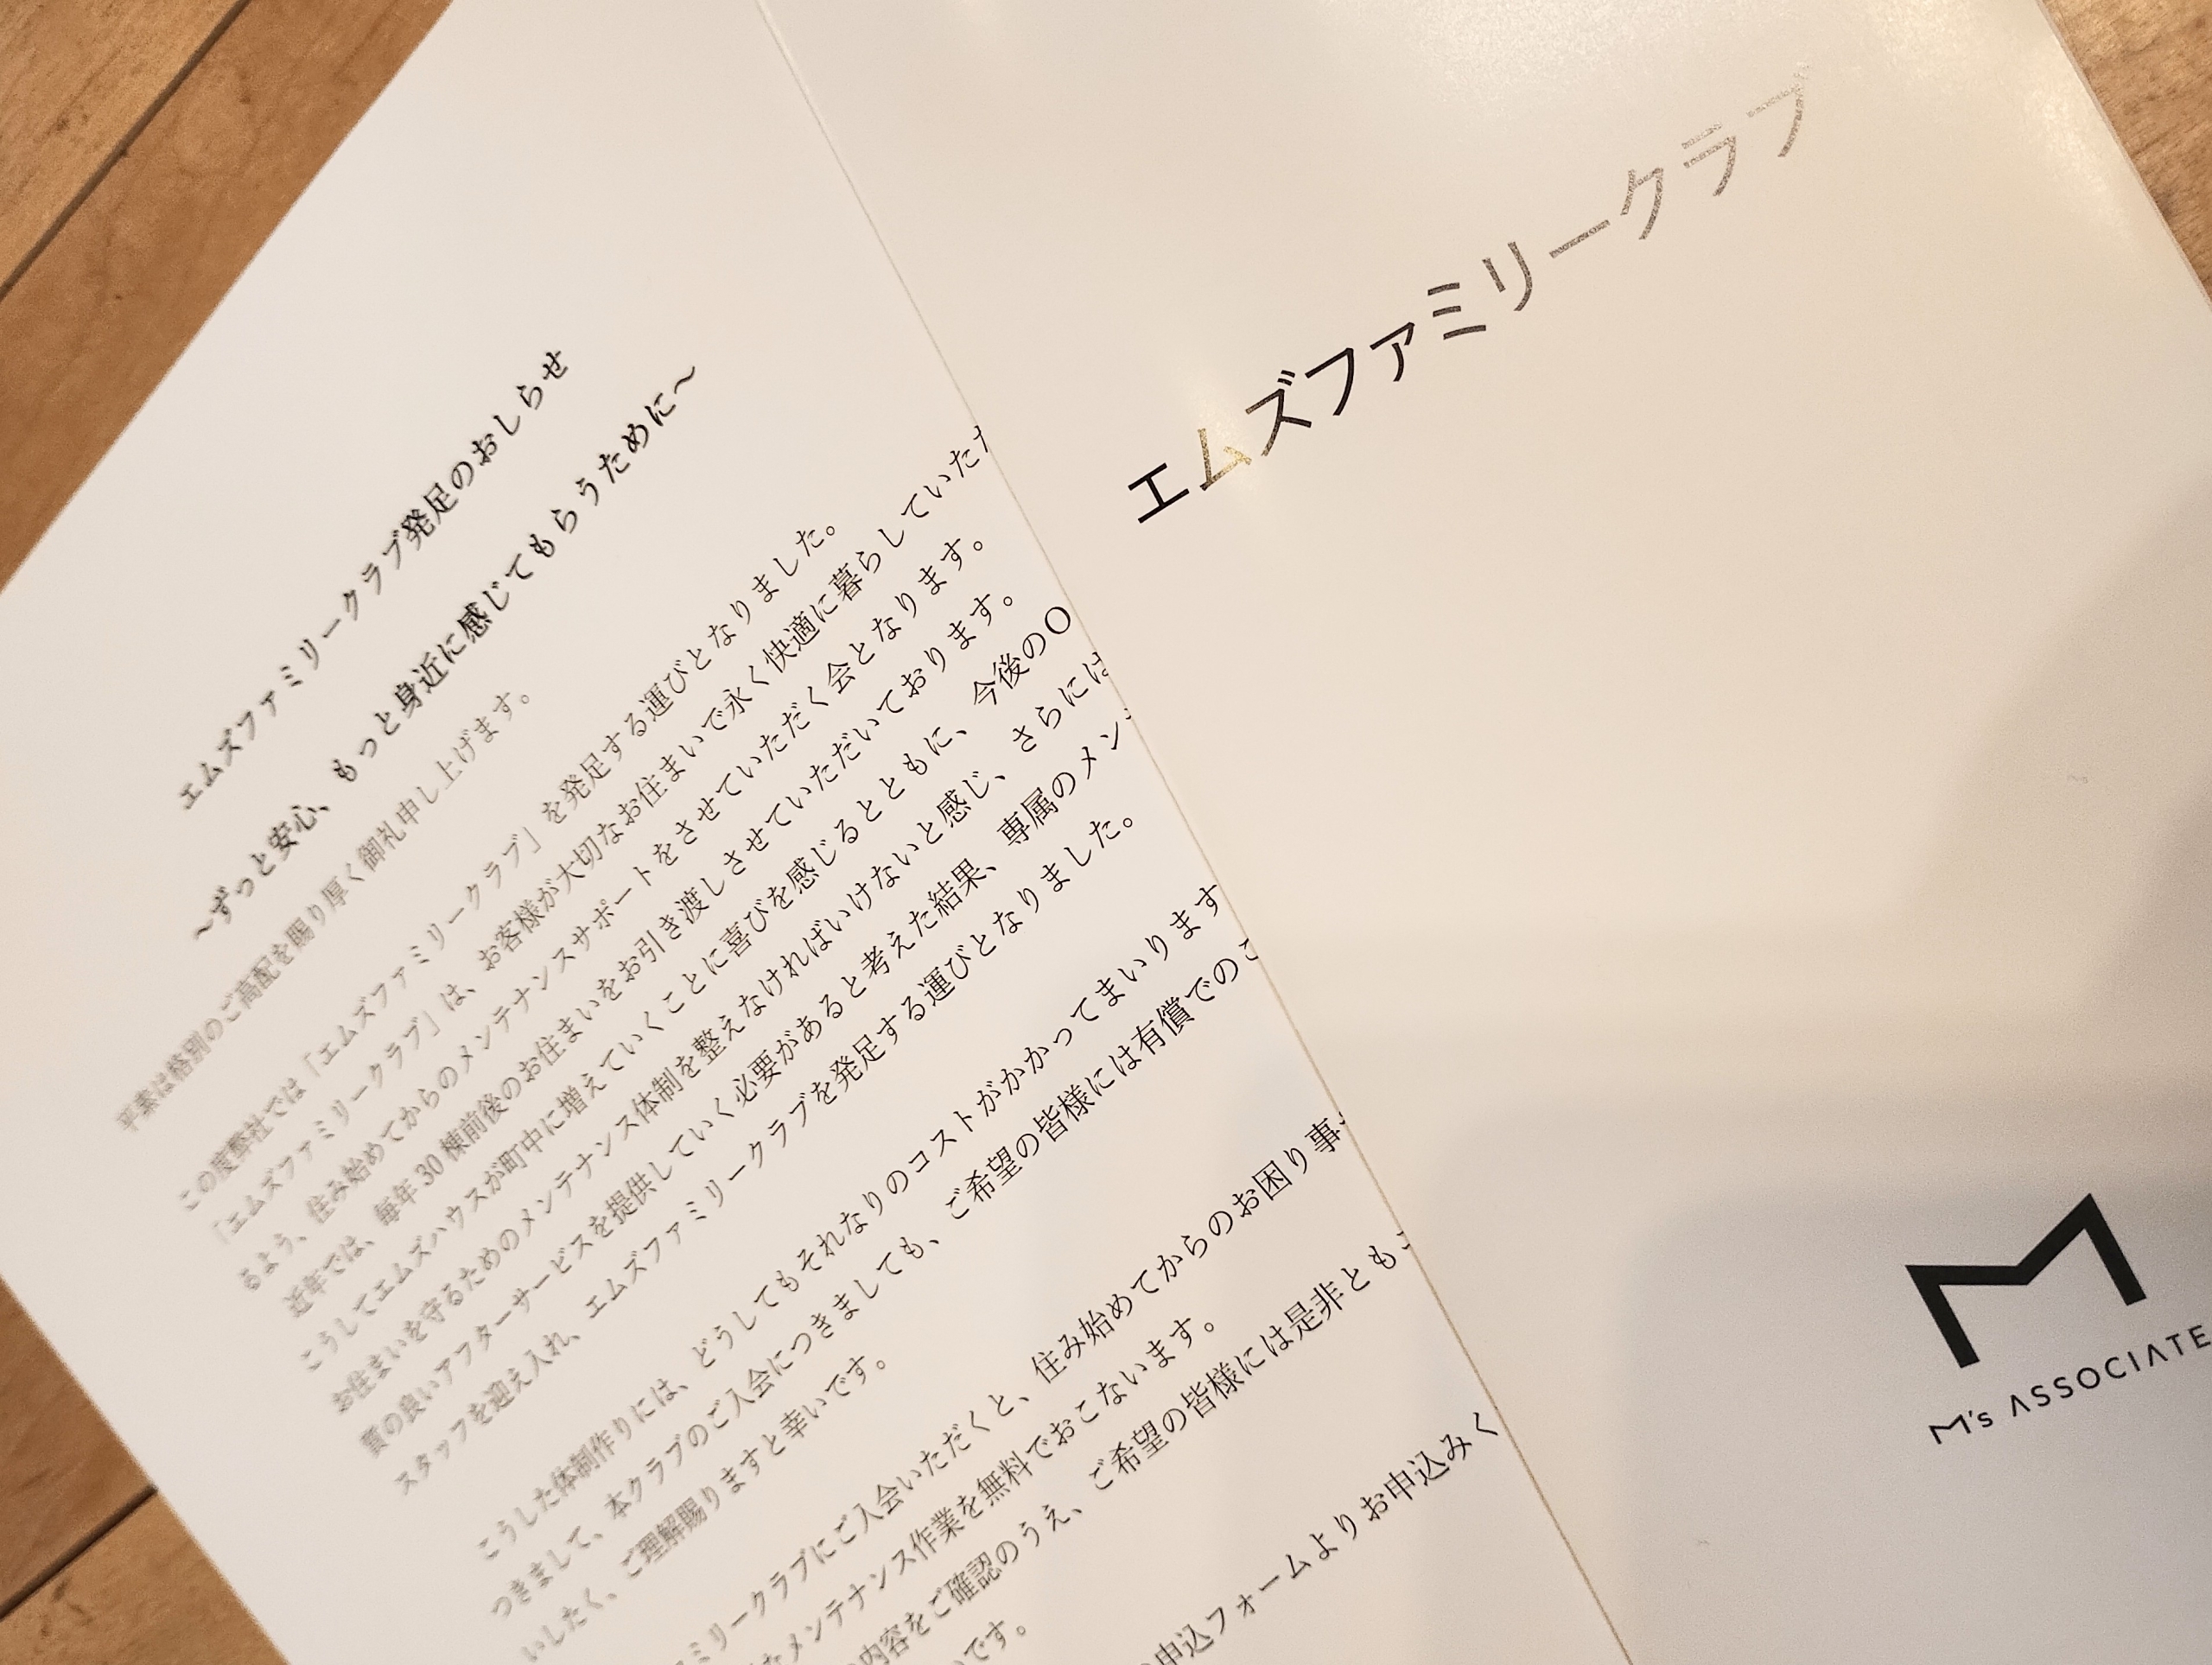 エムズファミリークラブ発足のおしらせ
～ずっと安心、もっと身近に感じてもらうために～
平素は格別のご高配を賜り厚く御礼申し上げます。
この度弊社では「エムズファミリークラブ」を発足する運びとなりました。
「エムズファミリークラブ」は、お客様が大切なお住まいで永く快適に暮らしていた
るよう、住み始めてからのメンテナンスサポートをさせていただく会となります。
近年では、毎年30棟前後のお住まいをお引き渡しさせていただいております。
こうしてエムズハウスが町中に増えていくことに喜びを感じるとともに、今後のO
お住まいを守るためのメンテナンス体制を整えなければいけないと感じ、さらには
質の良いアフターサービスを提供していく必要があると考えた結果、専属のメン
スタッフを迎え入れ、エムズファミリークラブを発足する運びとなりました。
こうした体制作りには、どうしてもそれなりのコストがかかってまいります
つきまして、本クラブのご入会につきましても、ご希望の皆様には有償でのご
いしたく、ご理解賜りますと幸いです。
ミリークラブにご入会いただくと、住み始めてからのお困り事
メンテナンス作業を無料でおこないます。
内容をご確認のうえ、ご希望の皆様には是非とも
です。
申込フォームよりお申込みく
エムズファミリークラブ
M
M's ASSOCIATE